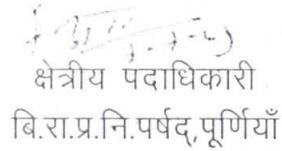 क्षेत्रीय पदाधिकारी
बि.रा.प्र.नि.पर्षद्,पूर्णियाँ